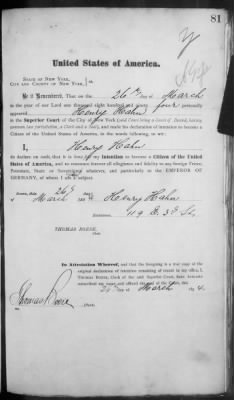 81
United States of America.
STATE OF NEW YORK,
CITY AND COUNTY OF NEW YORK, } ss.
Be it Remembered, That on the 26th day of March
in the year of our Lord one thousand eight hundred and ninety four personally
appeared Henry Hahn
in the Superior Court of the City of New York (said Court being a Court of Record, having
common law jurisdiction, a Clerk and a Seal), and made his declaration of intention to become a
Citizen of the United States of America, in the words following, to wit:
I, Henry Hahn
do declare on oath, that it is bona fide my Intention to become a Citizen of the United
States of America, and to renounce forever all allegiance and fidelity to any foreign Prince,
Potentate, State or Sovereignty whatever, and particularly to the EMPEROR OF
GERMANY, of whom I am a subject.
Sworn, this 26th day
of March 1894 Henry Hahn
Residence, 119 E. 3d St,
THOMAS BOESE,
Clerk.
In Attestation Whereof, and that the foregoing is a true copy of the
original declaration of intention remaining of record in my office, I,
THOMAS BOESE, Clerk of the said Superior Court, have hereunto
subscribed my name and affixed the seal of the Court, this
26th day of March 1894.
Thomas Boese
Clerk.